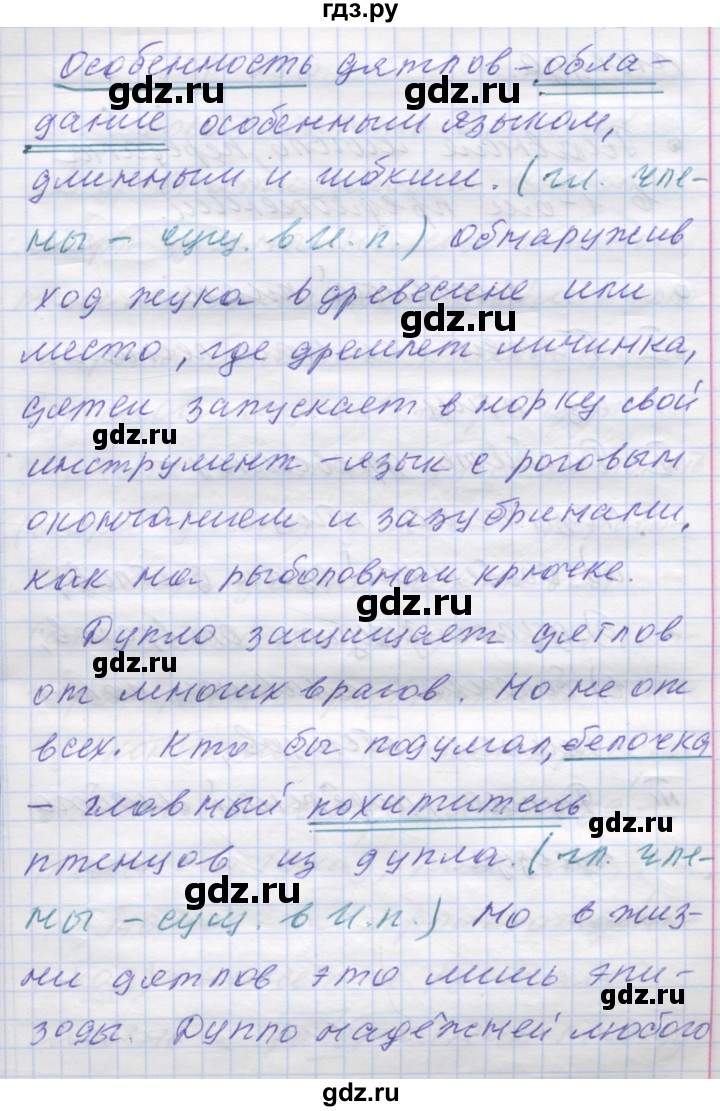 гдз.ру
Особенность дятлов – обла-
gdz.ru gdz.ru
дание особенным языком,
длинным и гибким. (гл. чле-
gdz.ru
ны – сущ. в И.п.) Обнаружив
ход жука в древесине или
gdz.ru
место, где дремлет личинка,
дятел запускает в норку свой
gdz.ru
инструмент – язык с роговым
окончанием и зазубринами,
как на рыболовном крючке.
gdz.ru
Дупло защищает дятлов
gdz.ru
от многих врагов. Но не от
всех. Кто бы подумал, белочка
– главный похититель
gdz.ru
птенцов из дупла. (гл. чле-
gdz.ru
ны – сущ. в И.п.) Но в жиз-
ни дятлов это лишь эпи-
gdz.ru
зоды. Дупло надёжней любого
gdz.ru
gdz.ru